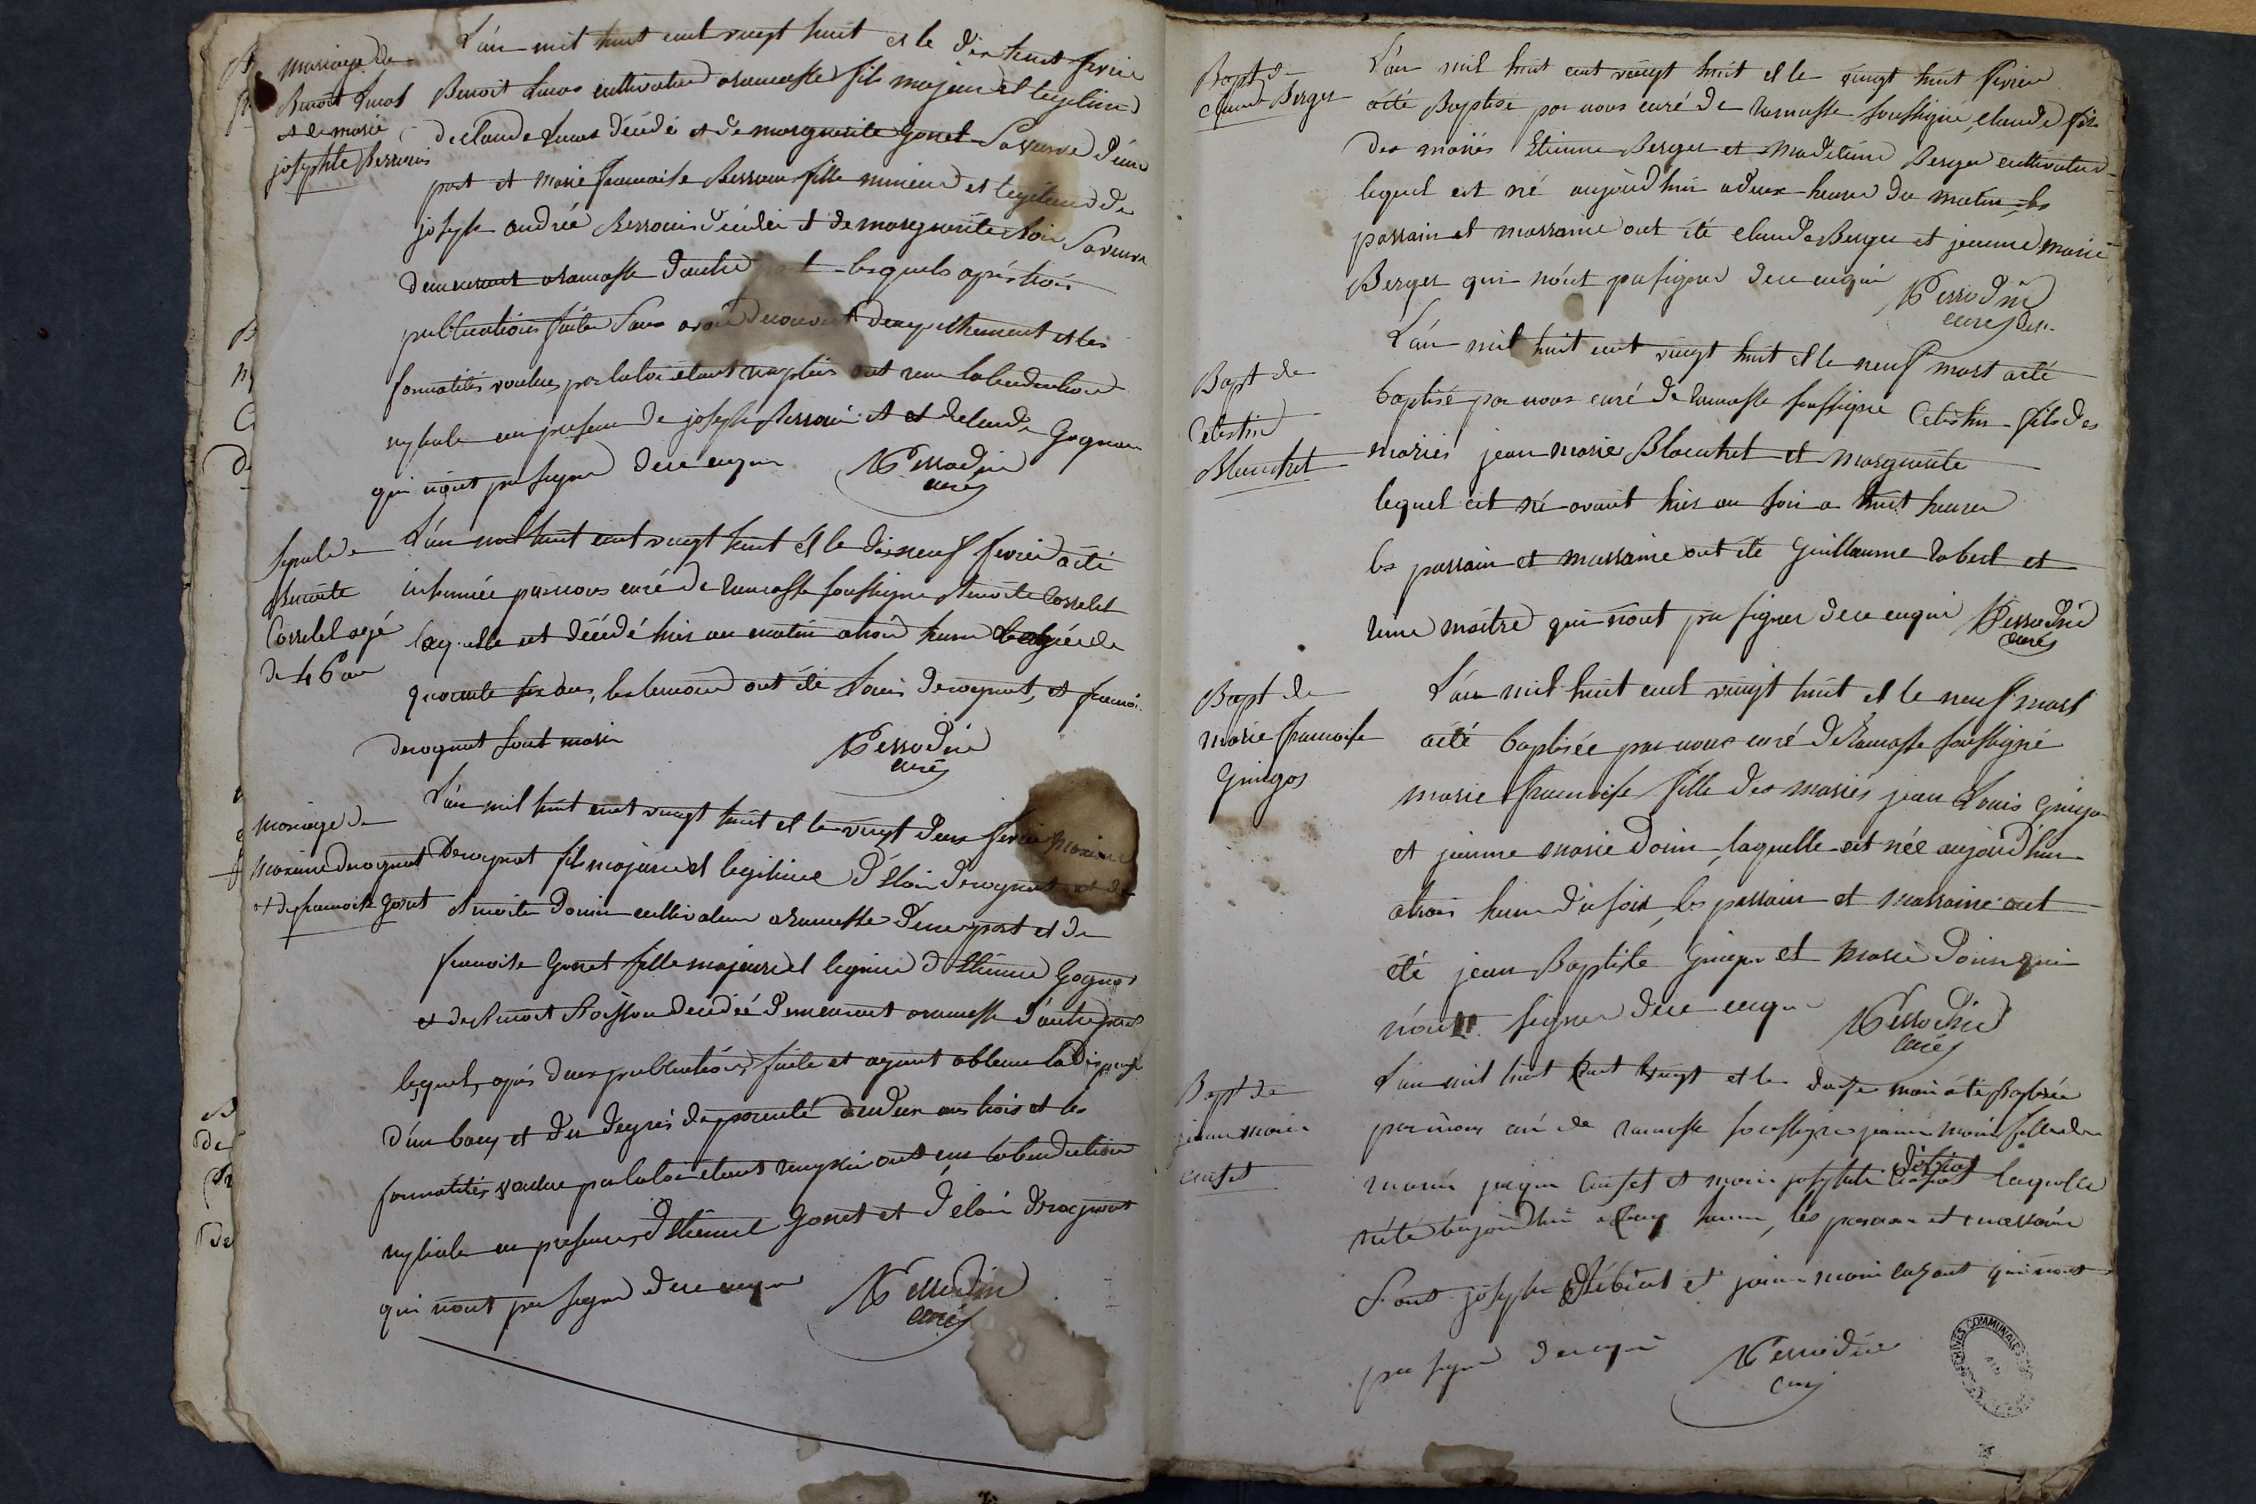 mariage de
Benoit Lucas
et de marie
josephte Berrouin
L'an mil huit cent vingt huit et le dix huit fevrie
Benoit Lucas cultivateur a ramasse fils majeur et legitime
de claude Lucas décédé et de marguerite Gonet sa veuve d'une
part et marie francoise fille mineure et legitime de
joseph andrée décédée et de marguerite sa veuve
demeurant a ramasse d'autre part lesquels après trois
publications faites sans avoir découvert d'empechement et les
formalités voulues par la loi étant remplies ont recu la benediction
nuptiale en presence de joseph et de claude Gognon
qui n'ont pu signer de ce enquis Perrodin
curé
sepult de
Benoite
Corselet agé
de 46 an
L'an mil huit cent vingt huit et le dix neuf fevrier a été
inhumée par nous curé de ramasse soussigné Benoite Corselet
laquelle est décédé hier au matin a trois heures agée de
quarante six ans, les temoins ont été Louis derognat, et francoi
derognat sont marin Perrodin
curé
mariage de
maxime derognat
et de francoise gonet
L'an mil huit cent vingt huit et le vingt deux fevrier maxime
Derognat fils majeur et legitime d'Eloi derognat et de
Benoite Donin cultivateur a ramasse d'une part et de
francoise Gonet fille majeure et legitime d'Etienne Gognet
et de Benoit décédée demeurant a ramasse d'autre part
lesquels, après deux publications faite et ayant obtenu la dispense
d'un banc et du degrés de parenté du deux au trois et les
formalités voulue par la loi étant remplie ont recu la benediction
nuptiale en presence d'Etienne Gonet et d'eloi derognat
qui n'ont pu signer de ce enquis Perrodin
curé
Bapt de
claude Berger
L'an mil huit cent vingt huit et le vingt huit fevrier
a été Baptisé par nous curé de ramasse soussigné, claude fils
des mariés Etienne Berger et madeleine Berger cultivateur
lequel est né aujourd'hui a deux heures du matin les
parrain et marraine ont été claude Berger et jeanne marie
Berger qui n'ont pu signer de ce enquis Perrodin
curé
Bapt de
Celestin
Blanchet
L'an mil huit cent vingt huit et le neuf mars a été
baptisé par nous curé de ramasse soussigné Celestin fils des
mariés jean marie Blanchet et marguerite
lequel est né avant hier au soir a huit heures
les parrain et marraine ont été Guillaume robert et
maitre qui n'ont pu signer de ce enquis Perrodin
curé
Bapt de
marie francoise
Guigos
L'an mil huit cent vingt huit et le neuf mars
a été baptisée par nous curé de Ramasse soussigné
marie francoise fille des mariés jean Louis Guigo
et jeanne marie Donin, laquelle est née aujourd'hui
a trois heures du soir, les parrain et marraine ont
été jean Baptiste Guigo et marie Donin qui
n'ont signer de ce enquis Perrodin
curé
Bapt de
jeanne marie
L'an mil huit cent vingt et le douze mai a été Baptisée
par nous curé de ramasse soussigné jeanne marie fille des
mariés et marie josephte Débiat laquelle
née aujourd'hui a cinq heures, les parrain et marraine
sont joseph Débiat et jeanne marie qui n'ont
pu signer de ce enquis Perrodin
curé
ARCHIVES COMMUNALES